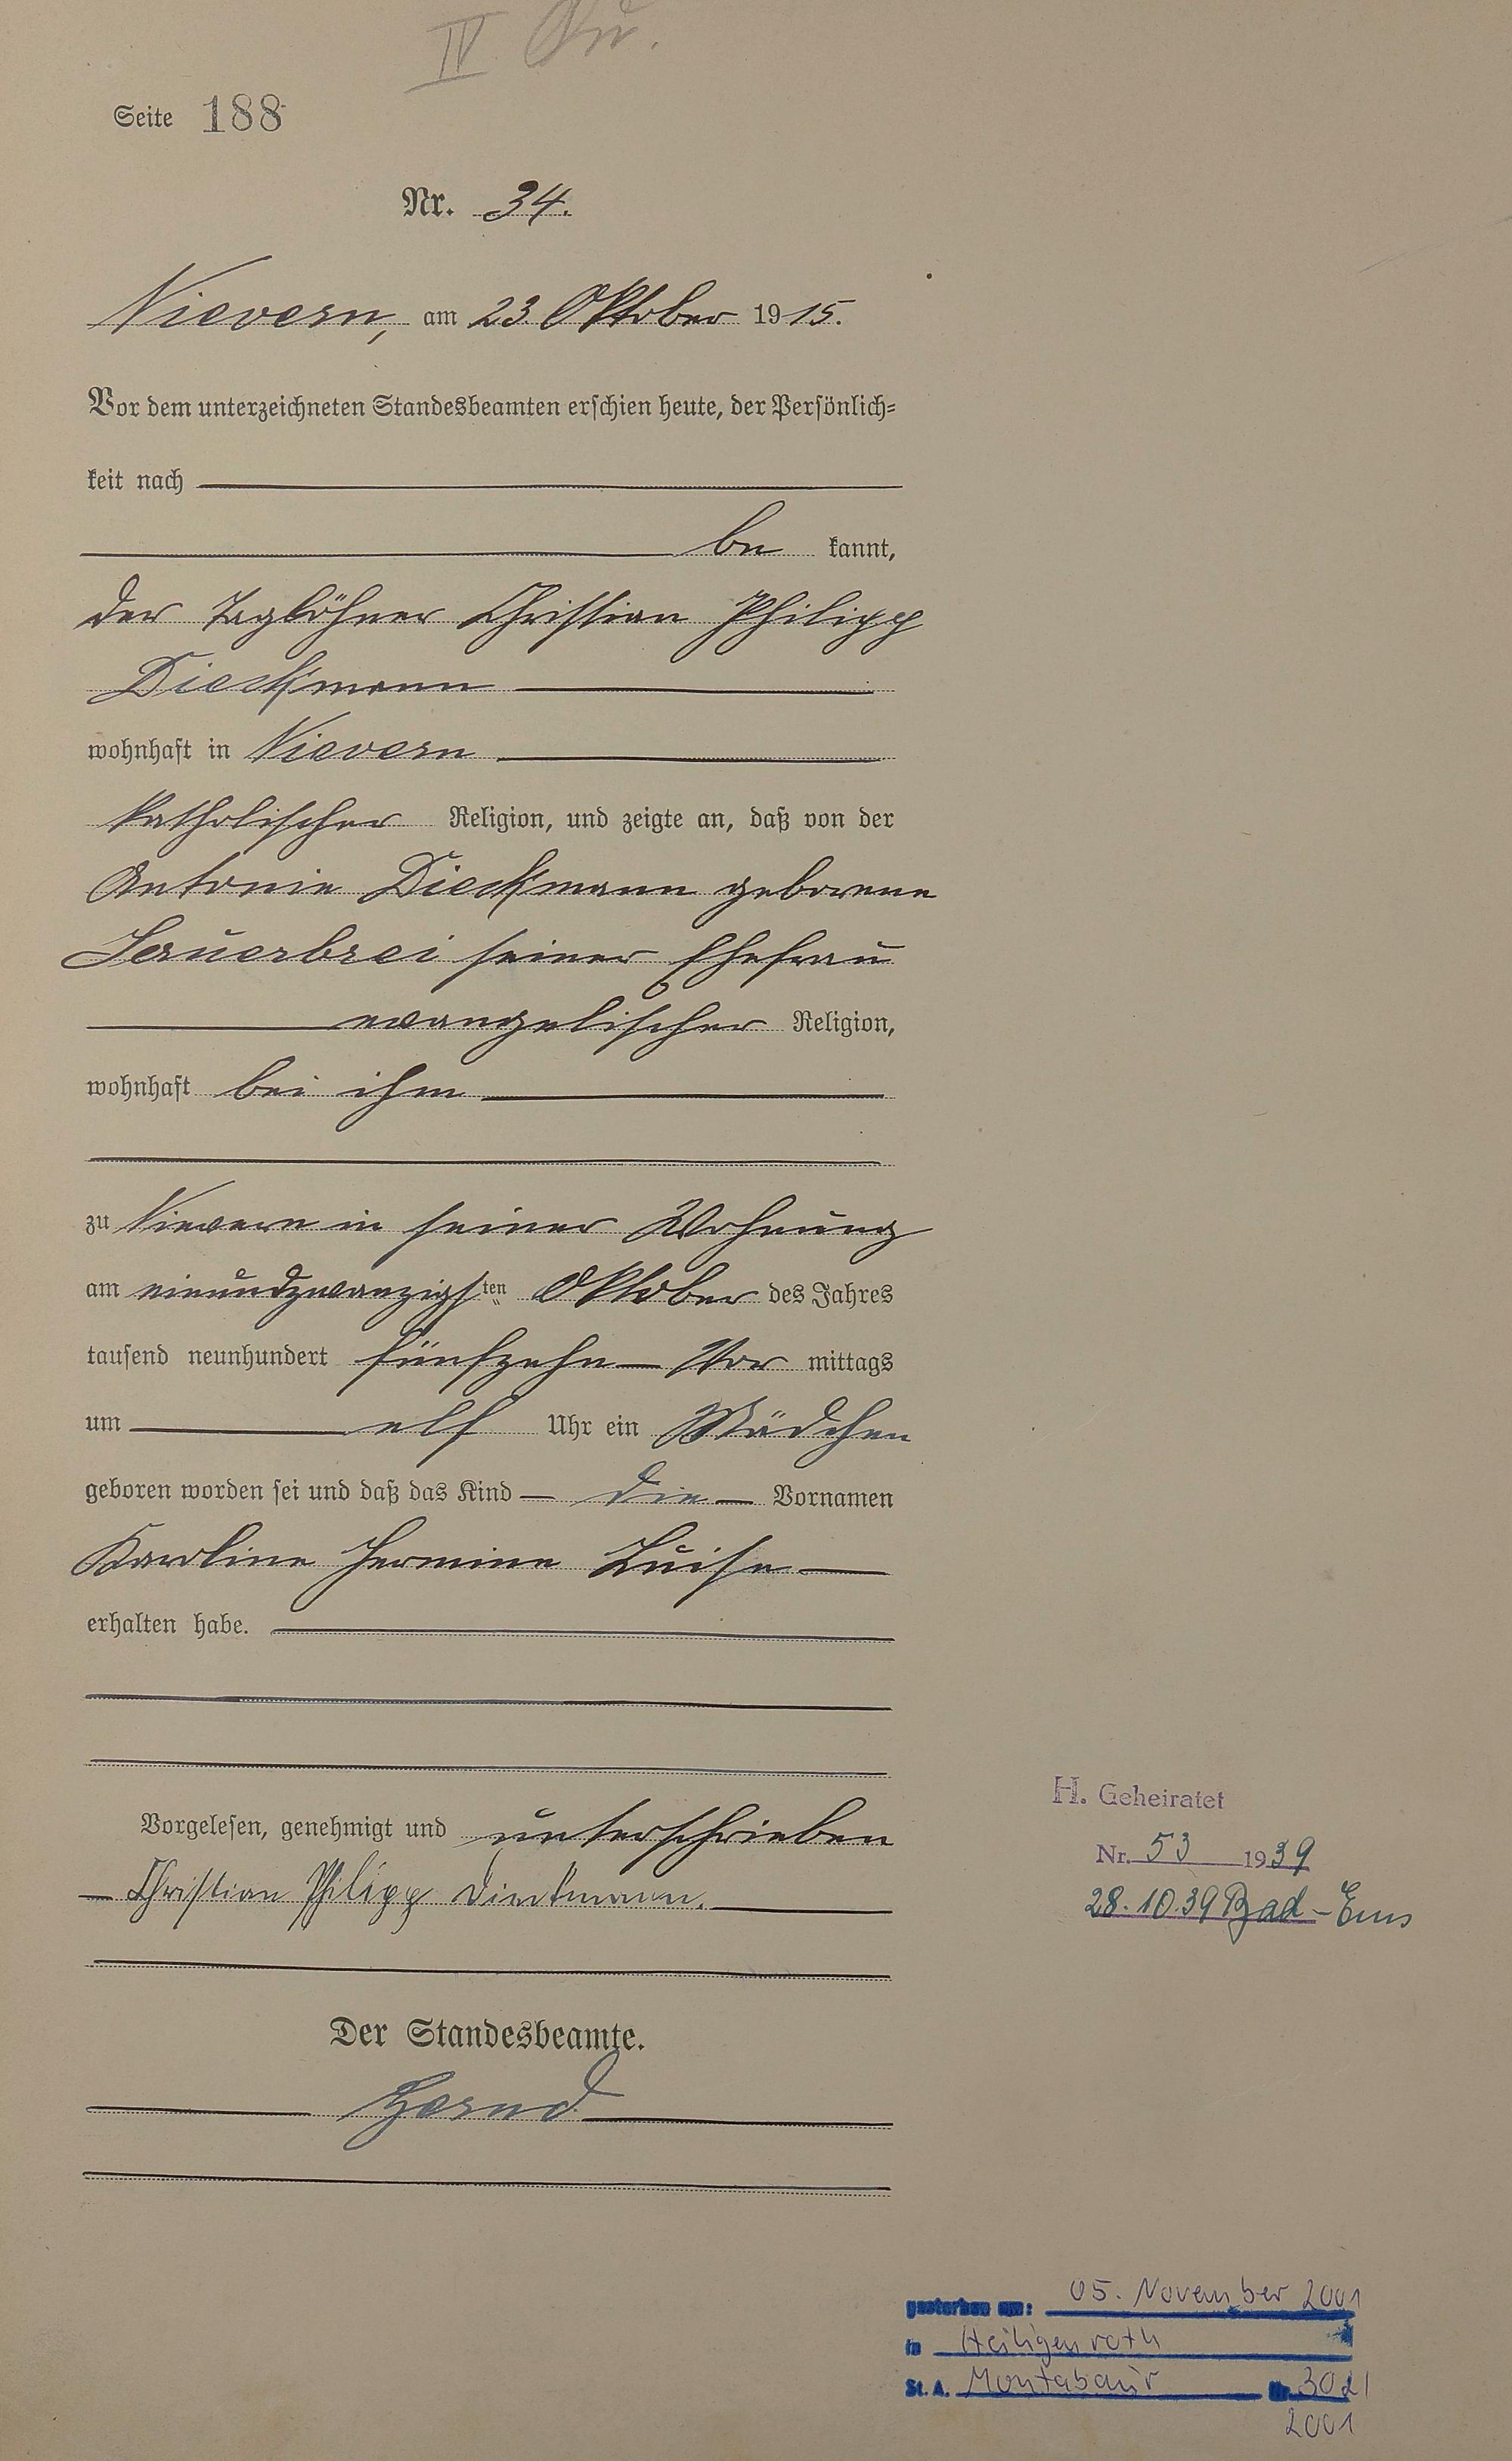 IV.
Seite 188
Nr. 34.
Nievern, am 23. Oktober 1915.
Vor dem unterzeichneten Standesbeamten erschien heute, der Persönlich=
keit nach
be kannt,
der Taglöhner Christian Philipp
Dieckmann
wohnhaft in Nievern
katholischer Religion, und zeigte an, daß von der
Antonie Dieckmann geborene
Sauerbrei seiner Ehefrau
evangelischer Religion,
wohnhaft bei ihm
zu Nievern in seiner Wohnung
am einundzwanzigsten Oktober des Jahres
tausend neunhundert fünfzehn Vor mittags
um elf Uhr ein Mädchen
geboren worden sei und daß das Kind die Vornamen
Karoline Hermine Luise
erhalten habe.
Vorgelesen, genehmigt und unterschrieben
Christian Philipp Diekmann.
Der Standesbeamte.
H. Geheiratet
Nr. 53 1939
28.10.39 Bad-Ems
gestorben am: 05. November 2001
in Heiligenroth
St. A. Montabaur Nr.
2001